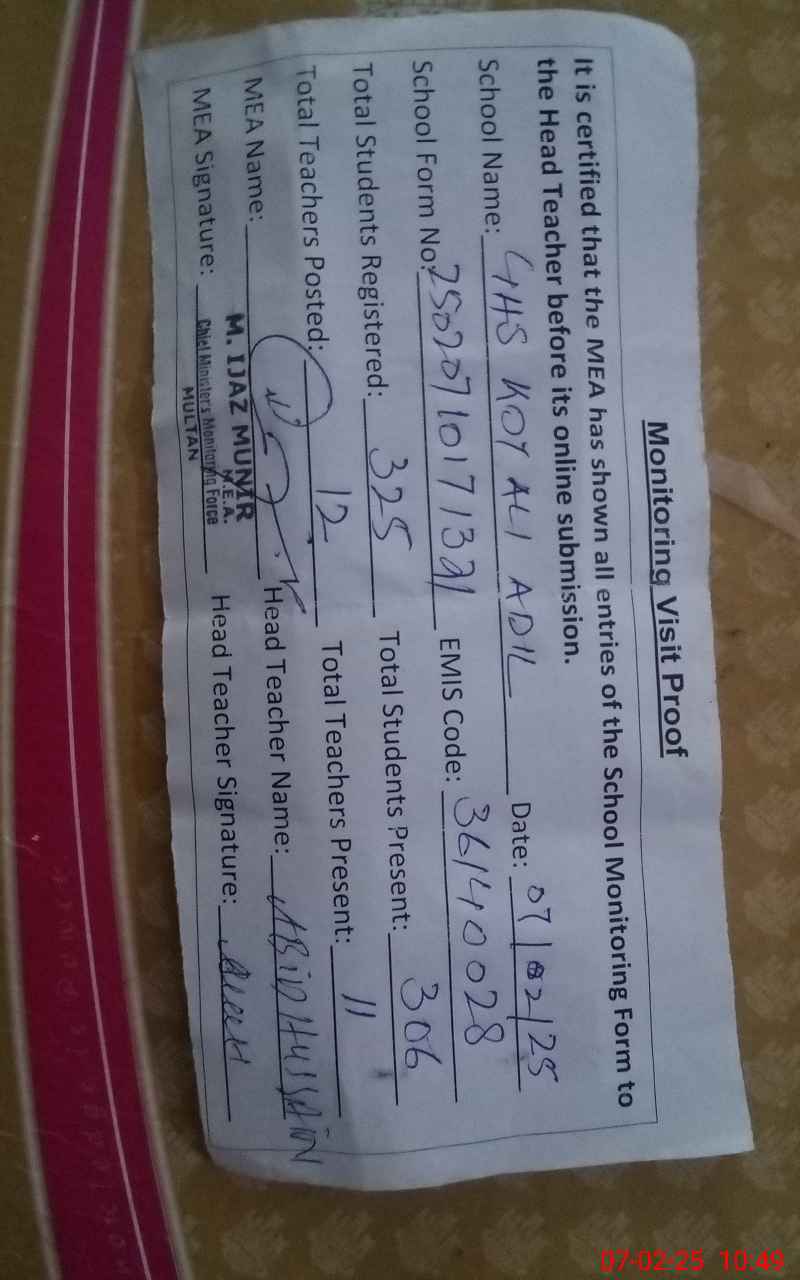 Monitoring Visit Proof
It is certified that the MEA has shown all entries of the School Monitoring Form to
the Head Teacher before its online submission.
School Name: GHS KOT ALI ADIL Date: 07/02/25
School Form No: 2502071017132 EMIS Code: 36140028
Total Students Registered: 325 Total Students Present: 306
Total Teachers Posted: 12 Total Teachers Present: 11
MEA Name: M. IJAZ MUNIR Head Teacher Name: ABID HUSSAIN
M.E.A.
MEA Signature: Chief Minister's Monitoring Force Head Teacher Signature:
MULTAN
07-02-25 10:49